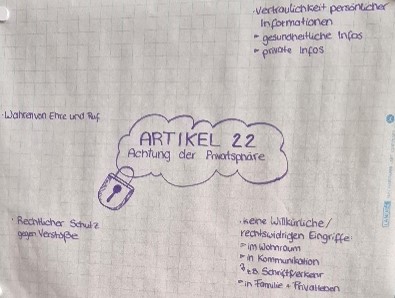 ·Vertraulichkeit persönlicher
Informationen
- gesundheitliche Infos
- private Infos
·Wahren von Ehre und Ruf
ARTIKEL 22
Achtung der Privatsphäre
· Rechtlicher Schutz
gegen Verstöße
·keine Willkürliche/
rechtswidrigen Eingriffe:
- im Wohnraum
- in Kommunikation
z.B. Schriftverkehr
- in Familie + Privatleben